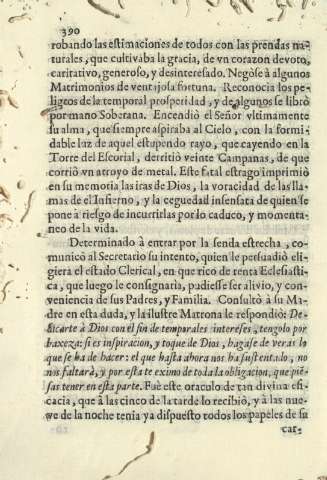 390
robando las estimaciones de todos con las prendas na-
turales, que cultivàba la gracia, de vn corazon devoto,
caritativo, generoso, y desinteresado. Negòse à algunos
Matrimonios de ventajosa fortuna. Reconocia los pe-
ligros de la temporal prosperidad, y de algunos se librò
por mano Soberana. Encendiò el Señor vltimamente
su alma, que siempre aspiraba al Cielo, con la formi-
dable luz de aquel estupendo rayo, que cayendo en la
Torre del Escorial, derritiò veinte Campanas, de que
corriò vn arroyo de metal. Este fatal estrago imprimiò
en su memoria las iras de Dios, la voracidad de las lla-
mas de el Infierno, y la ceguedad insensata de quien se
pone à riesgo de incurrirlas por lo caduco, y momenta-
neo de la vida.
Determinado à entrar por la senda estrecha, co-
municò al Secretario su intento, quien le persuadiò eli-
giera el estado Clerical, en que rico de renta Eclesiasti-
ca, que luego le consignaria, pudiesse ser alivio, y con-
veniencia de sus Padres, y Familia. Consultò à su Ma-
dre en esta duda, y la ilustre Matrona le respondiò: De-
dicarte à Dios con el fin de temporales intereses, tengolo por
baxeza: si es inspiracion, y toque de Dios, hagase de veras lo
que se ha de hacer: el que hasta ahora nos ha sustentado, no
nos faltarà, y por esta te eximo de toda la obligacion, que pien-
sas tener en esta parte. Fuè este oraculo de tan divina efi-
cacia, que à las cinco de la tarde lo recibiò, y à las nue-
ve de la noche tenia ya dispuesto todos los papeles de su
car-